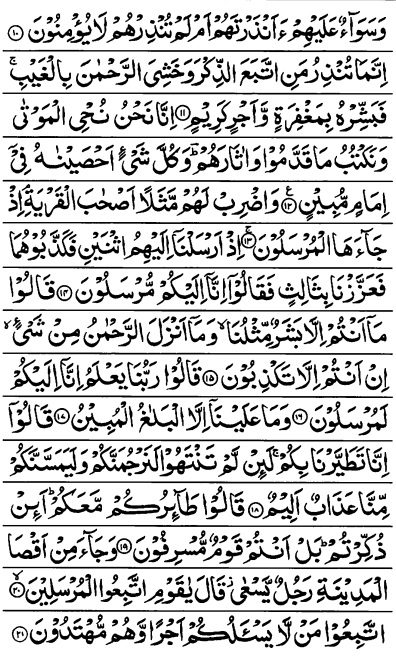 وَسَوَآءٌ عَلَيْهِمْ ءَاَنْذَرْتَهُمْ اَمْ لَمْ تُنْذِرْهُمْ لَا يُؤْمِنُوْنَ ﴿۱۰﴾
اِنَّمَا تُنْذِرُ مَنِ اتَّبَعَ الذِّكْرَ وَخَشِيَ الرَّحْمٰنَ بِالْغَيْبِ ۚ
فَبَشِّرْهُ بِمَغْفِرَةٍ وَّاَجْرٍ كَرِيْمٍ ﴿۱۱﴾ اِنَّا نَحْنُ نُحْيِ الْمَوْتٰى
وَنَكْتُبُ مَا قَدَّمُوْا وَاٰثَارَهُمْ ؕ وَكُلَّ شَيْءٍ اَحْصَيْنٰهُ فِيْۤ
اِمَامٍ مُّبِيْنٍ ﴿۱۲﴾ وَاضْرِبْ لَهُمْ مَّثَلًا اَصْحٰبَ الْقَرْيَةِ ۘ اِذْ
جَآءَهَا الْمُرْسَلُوْنَ ﴿۱۳﴾ اِذْ اَرْسَلْنَاۤ اِلَيْهِمُ اثْنَيْنِ فَكَذَّبُوْهُمَا
فَعَزَّزْنَا بِثَالِثٍ فَقَالُوْۤا اِنَّاۤ اِلَيْكُمْ مُّرْسَلُوْنَ ﴿۱۴﴾ قَالُوْا
مَاۤ اَنْتُمْ اِلَّا بَشَرٌ مِّثْلُنَا ۙ وَمَاۤ اَنْزَلَ الرَّحْمٰنُ مِنْ شَيْءٍ ۙ
اِنْ اَنْتُمْ اِلَّا تَكْذِبُوْنَ ﴿۱۵﴾ قَالُوْا رَبُّنَا يَعْلَمُ اِنَّاۤ اِلَيْكُمْ
لَمُرْسَلُوْنَ ﴿۱۶﴾ وَمَا عَلَيْنَاۤ اِلَّا الْبَلٰغُ الْمُبِيْنُ ﴿۱۷﴾ قَالُوْۤا
اِنَّا تَطَيَّرْنَا بِكُمْ ۚ لَئِنْ لَّمْ تَنْتَهُوْا لَنَرْجُمَنَّكُمْ وَلَيَمَسَّنَّكُمْ
مِّنَّا عَذَابٌ اَلِيْمٌ ﴿۱۸﴾ قَالُوْا طَآئِرُكُمْ مَّعَكُمْ ؕ اَئِنْ
ذُكِّرْتُمْ ؕ بَلْ اَنْتُمْ قَوْمٌ مُّسْرِفُوْنَ ﴿۱۹﴾ وَجَآءَ مِنْ اَقْصَا
الْمَدِيْنَةِ رَجُلٌ يَّسْعٰى ۫ قَالَ يٰقَوْمِ اتَّبِعُوا الْمُرْسَلِيْنَ ﴿۲۰﴾ ۙ
اتَّبِعُوْا مَنْ لَّا يَسْـَٔلُكُمْ اَجْرًا وَّهُمْ مُّهْتَدُوْنَ ﴿۲۱﴾